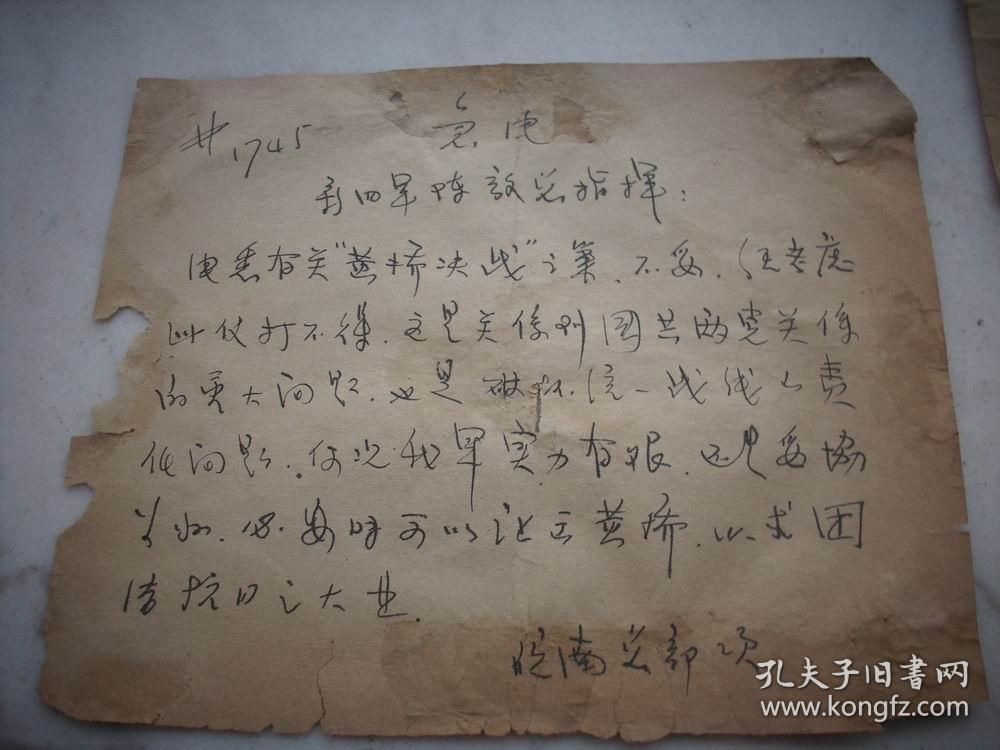 #1745
急电
新四军陈毅总指挥：
电悉有关"黄桥决战"之策，不妥，任老应
此仗打不得，这是关係到国共两党关係
的重大问题，也是破坏统一战线之责
任问题，何况我军实力有限，还是妥协
为好，必要时可以让出黄桥，以求团
结抗日之大业。
皖南总部 项
孔夫子旧书网
www.kongfz.com